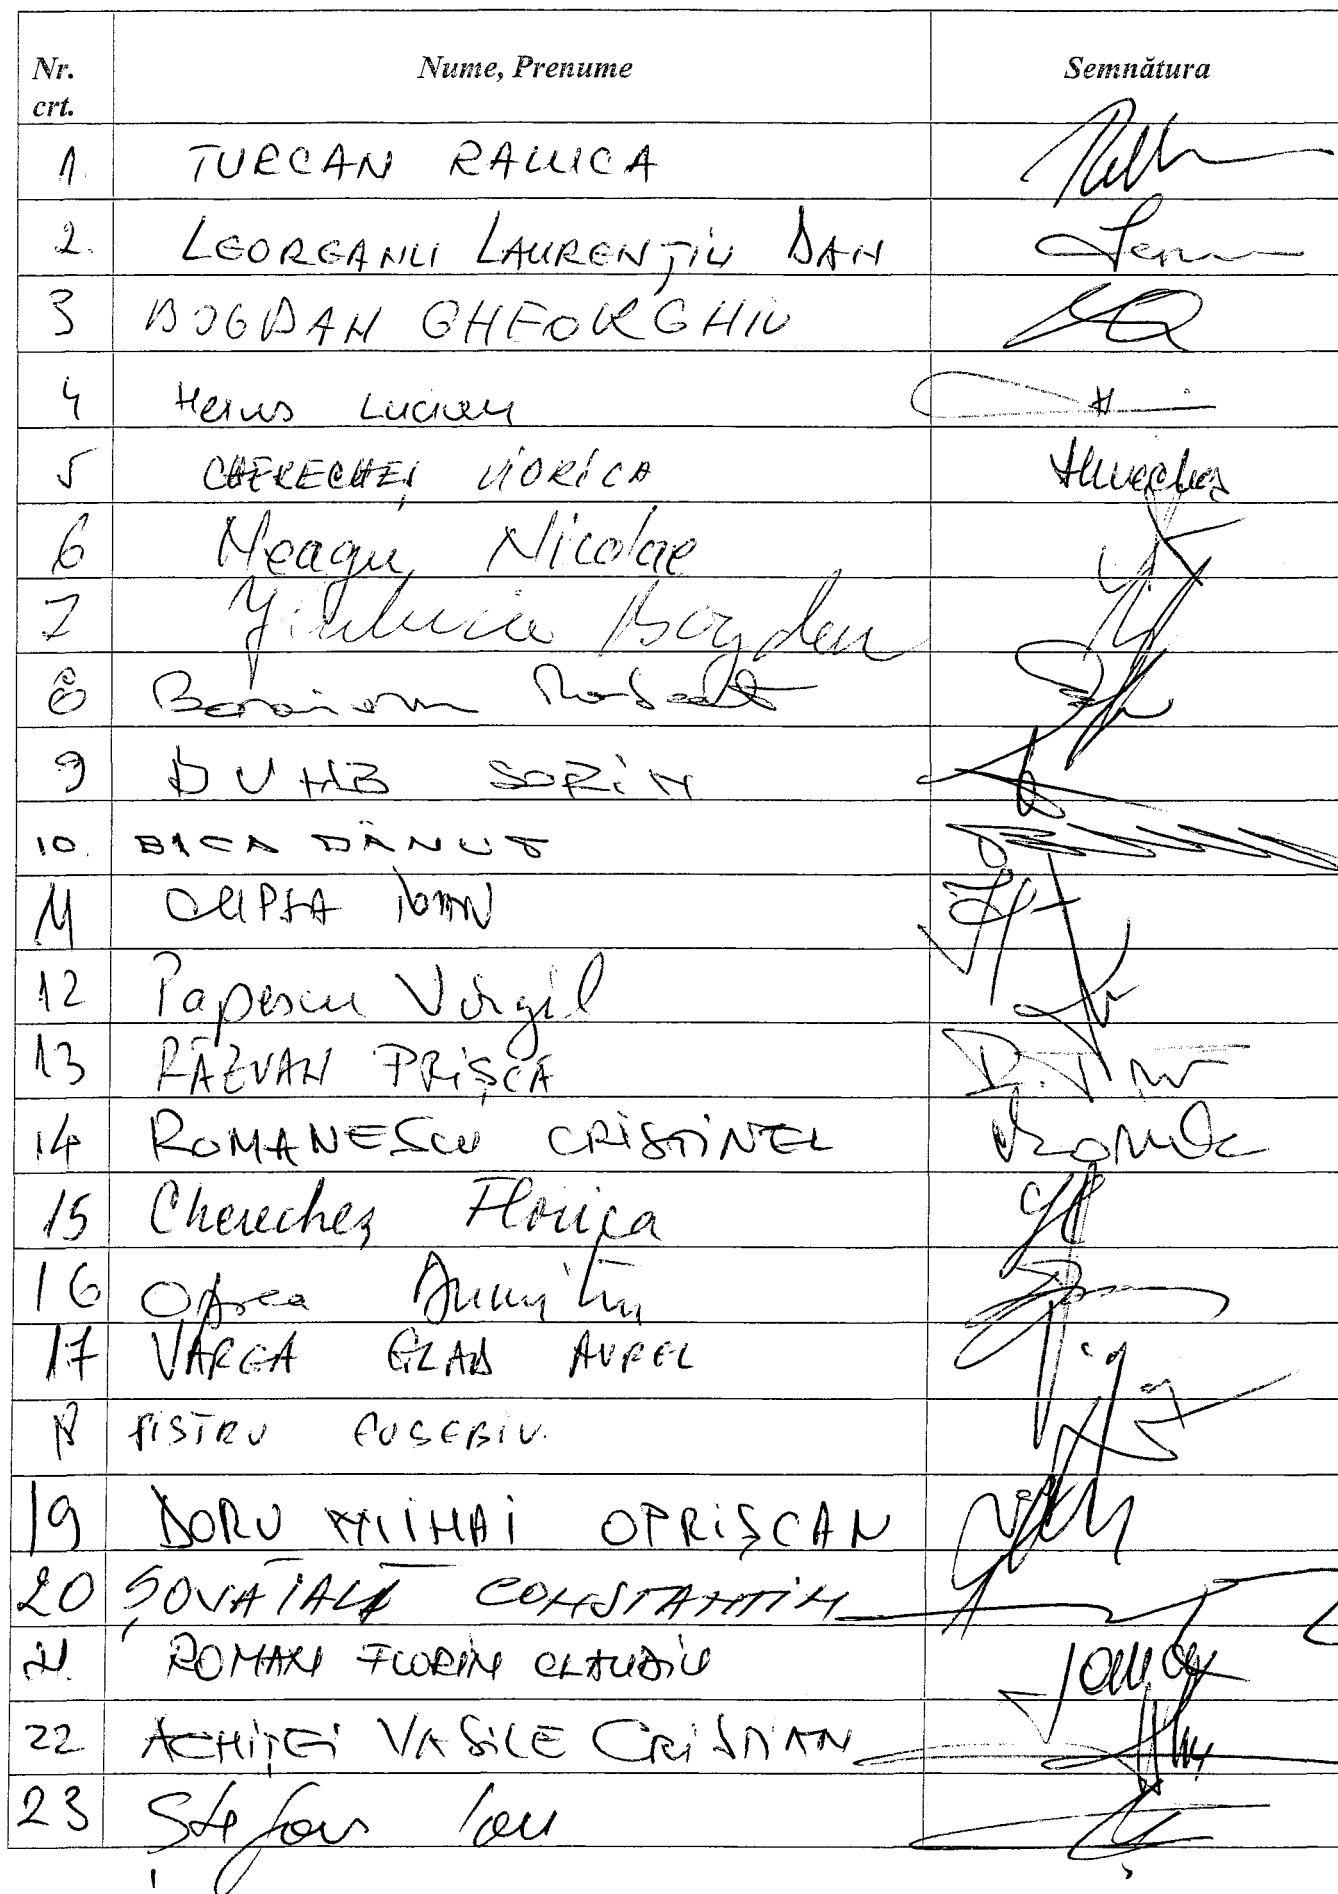 Nr. crt. Nume, Prenume Semnătura
1. TURCAN RALUCA
2. LEOREANU LAURENȚIU DAN
3 BOGDAN GHEORGHIU
4 Heius Lucian
5 CHERECHEȘ VIORICA
6 Neagu Nicolae
7 Bogdan
8 Boroianu Robert
9 DUHB SORIN
10. BICA DĂNUȚ
11 CUPȘA IOAN
12 Popescu Virgil
13 RĂZVAN PRIȘCĂ
14 ROMANESCU CRISTINEL
15 Cherecheș Florica
16 Oprea Dumitru
17 VARGA GLAD AUREL
18 PISTRU EUSEBIU.
19 DORU MIIHAI OPRIȘCAN
20 ȘOVĂIALĂ CONSTANTIN
21. ROMAN FLORIN CLAUDIU
22 ACHIȚEI VASILE CRISTIAN
23 Ștefan Ion